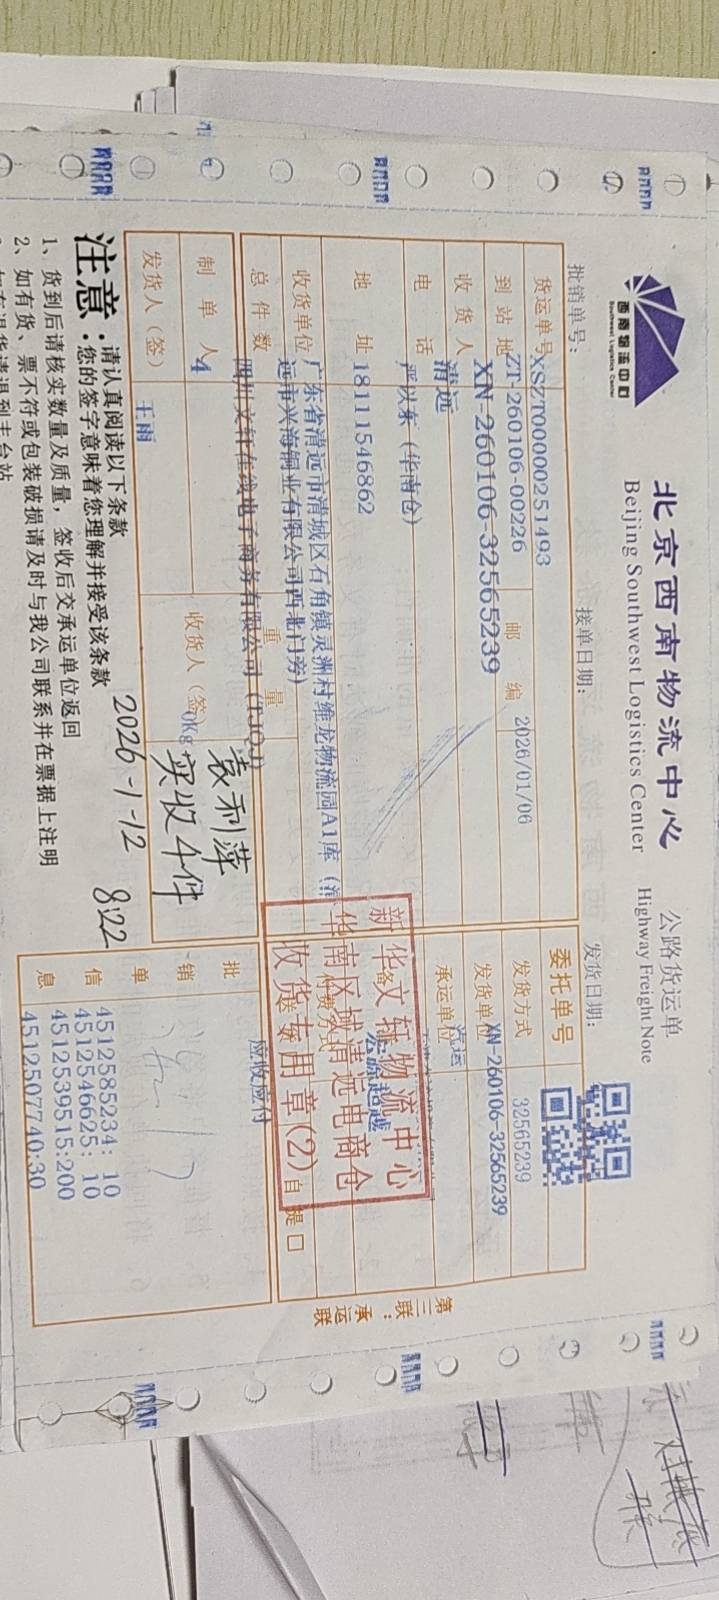 西南物流中心
Southwest Logistics Center
北京西南物流中心
Beijing Southwest Logistics Center
公路货运单
Highway Freight Note
批销单号:
接单日期:
发货日期:
货运单号
XSZT00000251493
ZT-260106-00226
邮编
2026/01/06
委托单号
32565239
到站地
XN-260106-32565239
发货方式
XN-260106-32565239
收货人
清远
发货单位
汽运
电话
严以东(华南仓)
承运单位
地址
18111546862
备
宏源超越
收货单位
广东省清远市清城区石角镇灵洲村维龙物流园A1库(清
远市兴海铜业有限公司西北门旁)
总件数
四川文轩在线电子商务有限公司(TJQJ)
重量
应收应付
自提口
制单人
4
收货人(签)
0Kg
袁利萍
实收4件
发货人(签)
王雨
2026-1-12 8:22
新华文轩物流中心
华南区域清远电商仓
收货专用章(2)
批销单信息
4512585234: 10
4512546625: 10
4512539515:200
4512507740:30
第三联:承运联
注意:
请认真阅读以下条款
您的签字意味着您理解并接受该条款
1、货到后请核实数量及质量,签收后交承运单位返回
2、如有货、票不符或包装破损请及时与我公司联系并在票据上注明